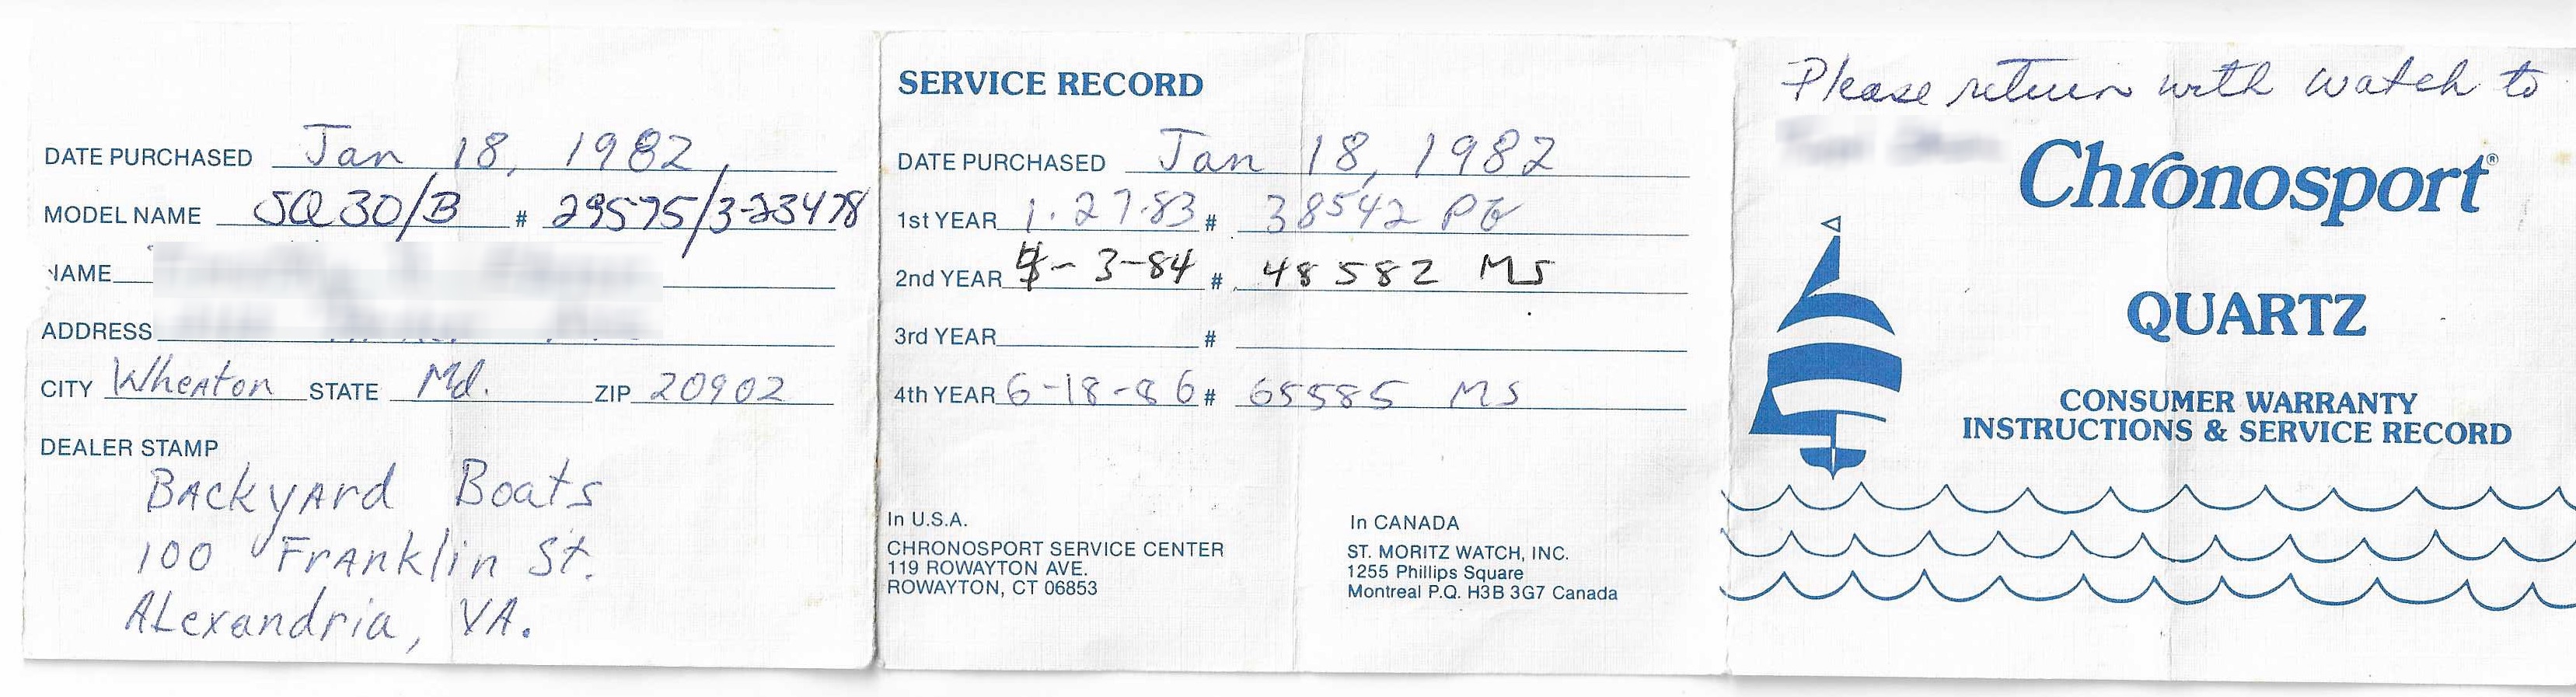 DATE PURCHASED Jan 18, 1982
MODEL NAME SQ30/B # 29575/3-23478
NAME
ADDRESS
CITY Wheaton STATE Md. ZIP 20902
DEALER STAMP
Backyard Boats
100 Franklin St.
Alexandria, VA.
SERVICE RECORD
DATE PURCHASED Jan 18, 1982
1st YEAR 1.27.83 # 38542
2nd YEAR - 3-84 # 48582 MS
3rd YEAR #
4th YEAR 6-18-86 # 65585 MS
In U.S.A.
CHRONOSPORT SERVICE CENTER
119 ROWAYTON AVE.
ROWAYTON, CT 06853
In CANADA
ST. MORITZ WATCH, INC.
1255 Phillips Square
Montreal P.Q. H3B 3G7 Canada
Please return with watch to
Chronosport®
QUARTZ
CONSUMER WARRANTY
INSTRUCTIONS & SERVICE RECORD